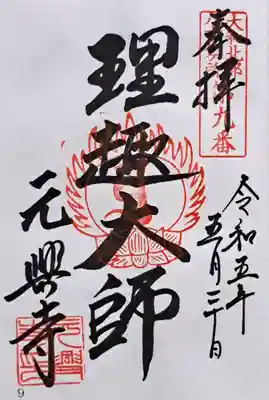 奉拝
大和北部
九番
令和五年
五月三十日
理趣大師
元興寺
元興寺
9